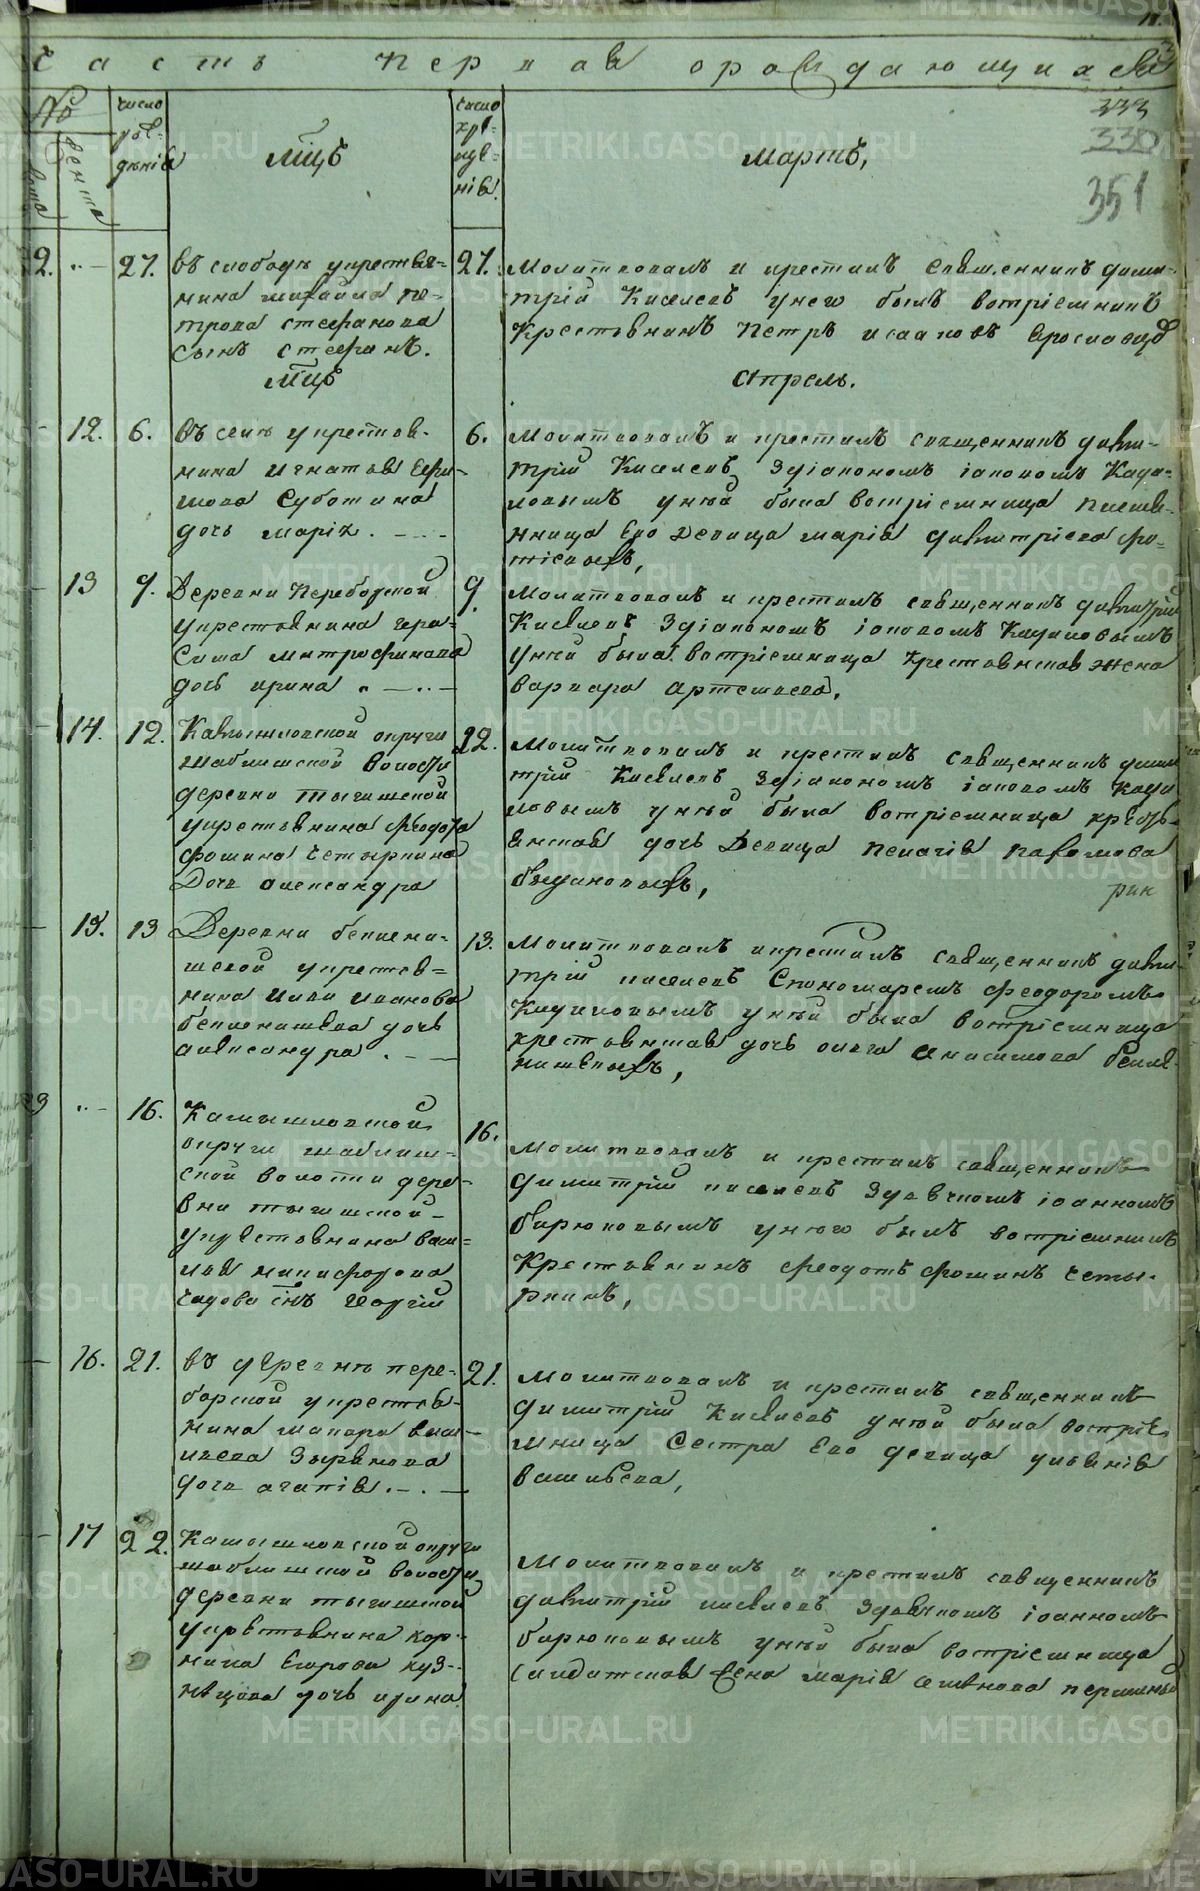 11.
Часть Первая ораждающихся
333
330
351
№
число рождѣнія
Мцъ
число крещенія
Мартъ,
22. 27. въ слободѣ укрестья-
нина михаила пе-
трова стефанова
сынъ стефанъ.
27. Молитвовалъ и крестилъ священникъ дими-
трій Киселевъ унего былъ вотпріемникъ
Крестьянинъ Петръ исааковъ
Мцъ
Апрель.
12. 6. въ селѣ укрестья-
нина игнатья Ефи-
мова Суботина
дочь марія.
6. Молитвовалъ и крестилъ священникъ дими-
трій Киселевъ здіакономъ іаковомъ Кади-
ловымъ унѣй была вотпріемница племя-
нница Его Девица марія димитріева
13 9. Деревни Переборской
укрестьянина гера-
сима митрофанова
дочь ирина
9. Молитвовалъ и крестилъ священникъ димитрій
Киселевъ здіакономъ іаковомъ Кадиловымъ
унѣй была вотпріемница крестьянская жена
варвара артемьева,
14. 12. Камышловской округи
шаблишской волости
деревни тыгишской
укрестьянина феодота
фомина Четыркина
Дочь александра
12. Молитвовалъ и крестилъ священникъ дими
трій Киселевъ здіакономъ іаковомъ Кади
ловымъ унѣй была вотпріемница кресть-
янская дочь Девица пелагія пахомова
15. 13 Деревни беклени-
шевой укрестья-
нина ильи иванова
бекленишева дочь
александра.
13. Молитвовалъ икрестилъ священникъ дими-
трій киселевъ Спономаремъ феодоромъ
Кадиловымъ унѣй была вотпріемница
крестьянская дочь ольга анисимова бекле-
нишевыхъ,
23 16. Камышловской
округи шаблиш-
ской волости дере-
вни тыгишской
укрестьянина васи-
лья никифорова
сiнъ георгій
16. Молитвовалъ и крестилъ священникъ
димитрій киселевъ здьячкомъ іоанномъ
бирюковымъ унего былъ вотпріемникъ
Крестьянинъ феодотъ фоминъ четы-
ркинъ,
16. 21. въ деревнѣ пере-
борской укрестья-
нина макара васи-
льева Зырянова
дочь агапія.
21. Молитвовалъ и крестилъ священникъ
димитрій Киселевъ унѣй была вотпріе-
мница Сестра Его девица ульянія
васильева,
17 22. Камышловской округи
шаблишской волости
деревни тыгишской
укрестьянина кор-
нила Егорова куз-
нѣцова дочь ирина
Молитвовалъ и крестилъ священникъ
димитрій киселевъ здьячкомъ іоанномъ
бирюковымъ унѣй была вотпріемница
Салдатская жена марія семѣнова
METRIKI.GASO-URAL.RU